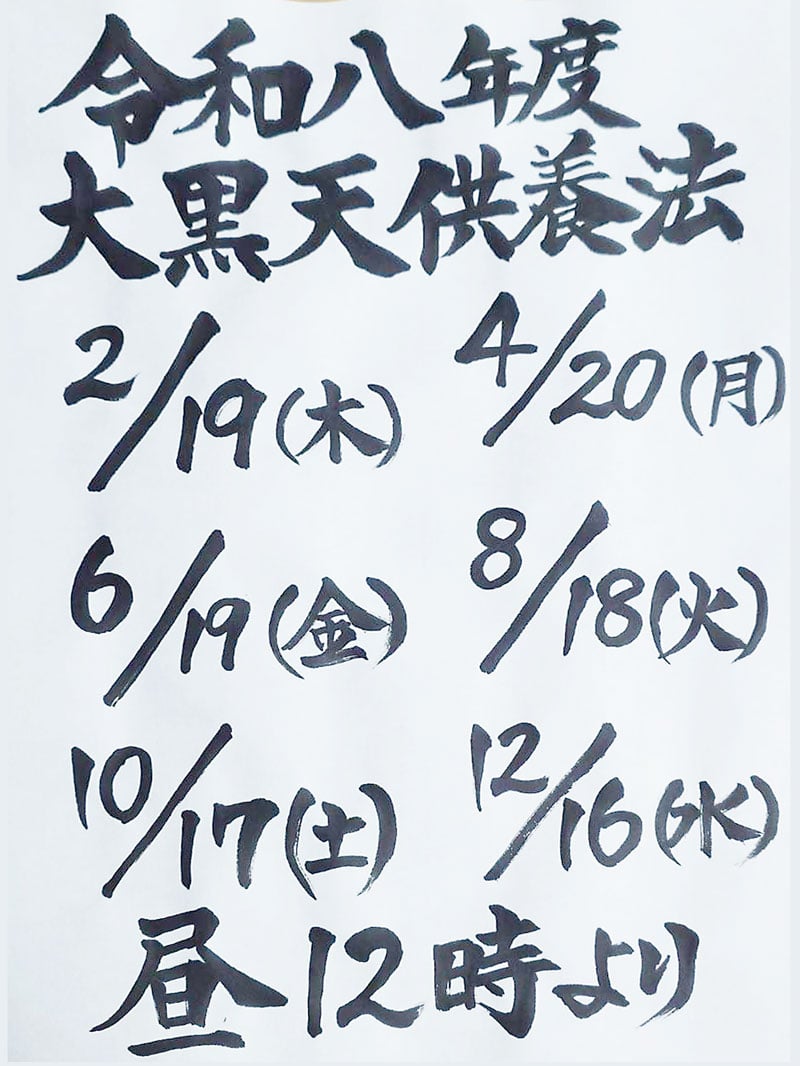 令和八年度
大黒天供養法
2/19(木) 4/20(月)
6/19(金) 8/18(火)
10/17(土) 12/16(水)
昼12時より